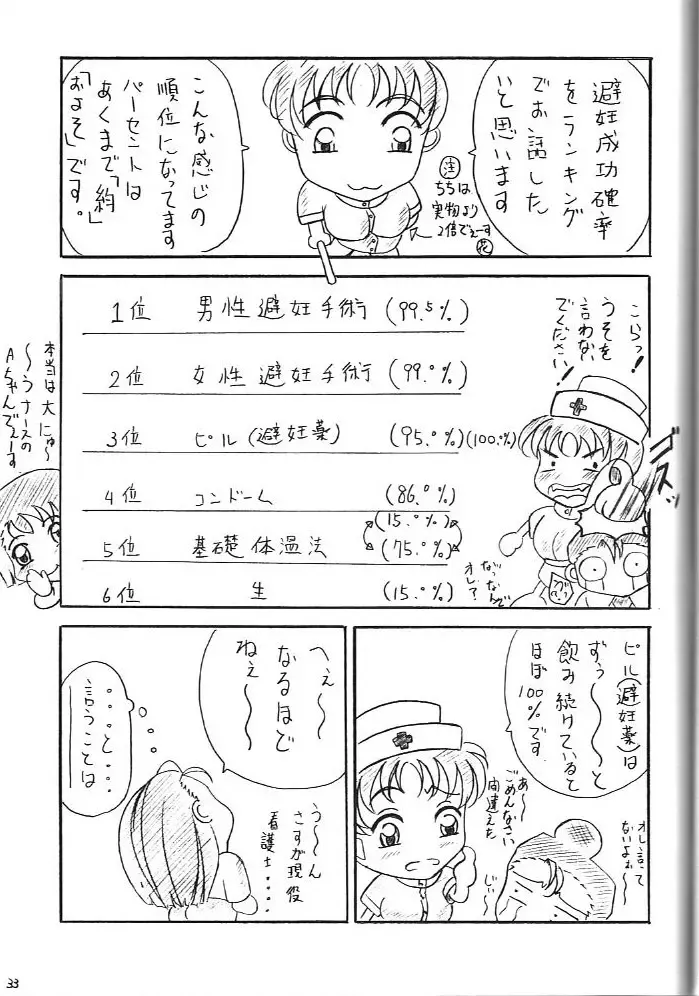 避妊成功確率
をランキング
でお話した
いと思います
注
ちちは
実物より
2倍でぇーす
花
こんな感じの
順位になってます
パーセントは
あくまで「約」
「およそ」です。
1位 男性避妊手術 (99.5%)
2位 女性避妊手術 (99.0%)
3位 ピル(避妊薬) (95.0%)(100%)
4位 コンドーム (86.0%)
(15.0%)
5位 基礎体温法 (75.0%)
6位 生 (15.0%)
こらっ!
うそを
言わない
でください!
なっなんで
オレ?
本当は大にゅ〜
〜うナースの
Aちゃんでぇーす
ピル(避妊薬)は
ずぅ〜〜〜と
飲み続けていると
ほぼ100%です
あ〜
ごめんなさい
間違えた
オレ言って
ないよぉ〜
じぃ〜
へぇ〜〜
なるほど
ねぇ〜〜
う〜〜ん
さすが現役
看護士・・・・
・・・と・・・
言うことは
33